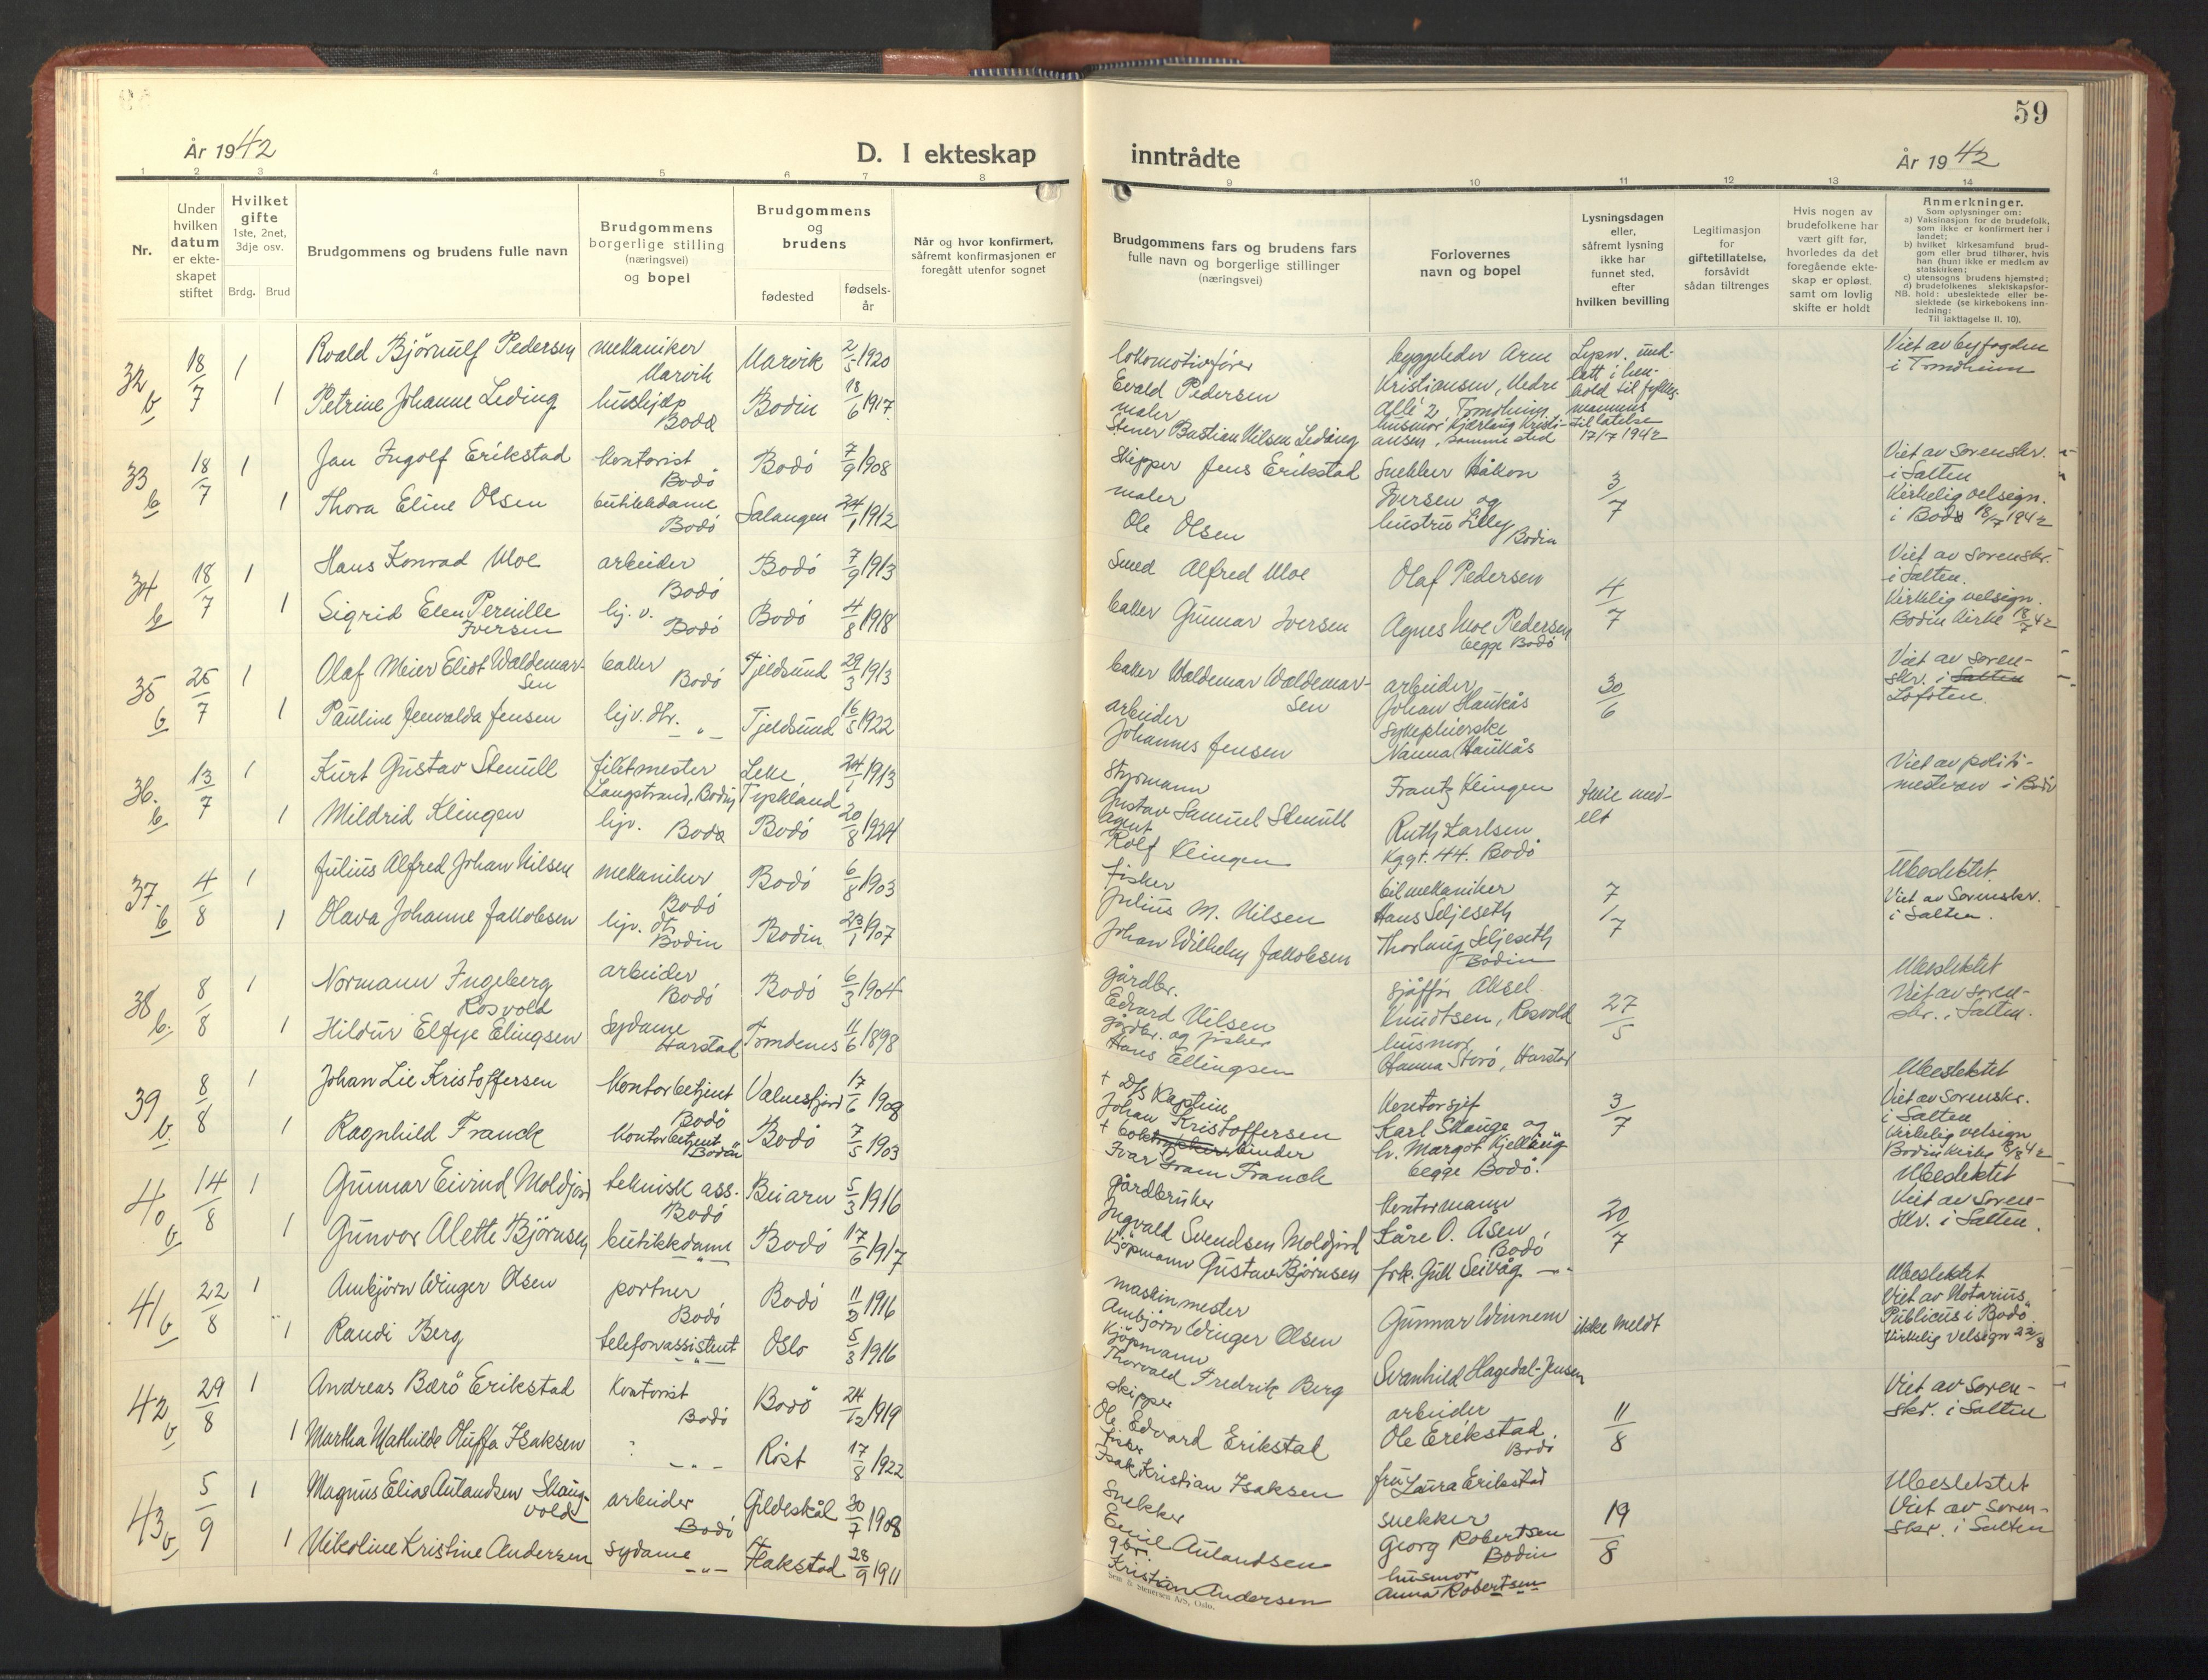 59
År 1942
D. I ekteskap
inntrådte
År 1942
1 2 3 4 5 6 7 8 9 10 11 12 13 14
Nr.
Under hvilken datum er ekteskapet stiftet
Hvilket gifte 1ste, 2net, 3dje osv.
Brdg. Brud
Brudgommens og brudens fulle navn
Brudgommens borgerlige stilling (næringsvei) og bopel
Brudgommens og brudens
fødested
fødselsår
Når og hvor konfirmert, såfremt konfirmasjonen er foregått utenfor sognet
Brudgommens fars og brudens fars fulle navn og borgerlige stillinger (næringsvei)
Forlovernes navn og bopel
Lysningsdagen eller, såfremt lysning ikke har funnet sted, efter hvilken bevilling
Legitimasjon for giftetillatelse, forsåvidt sådan tiltrenges
Hvis nogen av brudefolkene har vært gift før, hvorledes da det foregående ekteskap er opløst, samt om lovlig skifte er holdt
Anmerkninger.
Som oplysninger om:
a) Vaksinasjon for de brudefolk, som ikke er konfirmert her i landet;
b) hvilket kirkesamfund brudgom eller brud tilhører, hvis han (hun) ikke er medlem av statskirken;
c) utensogns brudens hjemsted;
d) brudefolkenes slektskapsforhold: ubeslektede eller beslektede (se kirkebokens innledning:
NB. Til iakttagelse II. 10).
32 b 18/7 1 Roald Bjørnulf Pedersen mekaniker Narvik Narvik 2/5 1920
1 Petrine Johanne Leding hushjelp Bodø Bodin 18/6 1917
lokomotivfører Evald Pedersen
maler Stener Bastian Nilsen Leding
byggeleder Arne Kristiansen, Nedre Allé 2, Trondheim
husmor Kjærlaug Kristiansen, samme sted
Lysn. undlatt i henhold til fylkesmannens tillatelse 17/7 1942
Viet av byfogden i Trondheim
33 b 18/7 1 Jan Ingolf Erikstad kontorist Bodø Bodø 7/9 1908
1 Thora Eline Olsen butikkdame Bodø Salangen 24/1 1912
skipper Jens Erikstad
maler Ole Olsen
snekker Håkon Iversen og hustru Lilly Bodin
3/7
Viet av sorenskr. i Salten
Kirkelig velsign. i Bodø 18/7 1942
34 b 18/7 1 Hans Konrad Moe arbeider Bodø Bodø 7/9 1913
1 Sigrid Elen Pernille Iversen hj. v. Bodø Bodø 4/8 1918
smed Alfred Moe
baker Gunnar Iversen
Olaf Pedersen
Agnes Moe Pedersen begge Bodø
4/7
Viet av sorenskr. i Salten.
Kirkelig velsign. Bodin kirke 18/7 42
35 b 25/7 1 Olaf Meier Eliot Waldemarsen baker Bodø Tjeldsund 29/3 1913
1 Pauline Jenvalda Jensen hjv. dtr. - " - Tjeldsund 16/5 1922
baker Waldemar Waldemarsen
arbeider Johannes Jensen
arbeider Johan Haukås
sykepleierske Nanna Haukås
30/6
Viet av sorenskr. i Salten Lofoten.
36. b 13/7 1 Kurt Gustav Stenull filetmester Langstrand, Bodin Tyskland 24/1 1913
1 Mildrid Klingen hjv. Bodø Bodø 20/8 1924
Styrmann Gustav Samuel Stenull
agent Rolf Klingen
Frantz Klingen
Ruth Karlsen Kggt. 44. Bodø
Viet av politimesteren i Bodø
37. b 4/8 1 Julius Alfred Johan Nilsen mekaniker Bodø Bodø 6/8 1903
1 Olava Johanne Jakobsen hjv. dtr. Bodin Bodin 23/1 1907
fisker Julius M. Nilsen
Johan Wilhelm Jakobsen
bilmekaniker Hans Seljeseth
Thorlaug Seljeseth Bodin
7/7
Ubeslektet.
Viet av Sorenskr. i Salten.
38 b. 8/8 1 Normann Ingeberg Rosvold arbeider Bodø Bodø 6/3 1904
1 Hildur Elfye Elingsen sydame Harstad Trondenes 11/6 1898
gårdbr. Edvard Nilsen
gårdbr. og fisker Hans Ellingsen
sjåfør Aksel Knudtsen, Rosvold
husmor Hanna Storø, Harstad
27/5
Ubeslektet
Viet av sorenskr. i Salten.
39 b. 8/8 1 Johan Lie Kristoffersen kontorbetjent Bodø Valnesfjord 17/6 1908
1 Ragnhild Franck kontorbetjent Bodø Bodø 7/5 1903
+ D/s Kaptein Johan Kristoffersen
+ boktrykker binder Ivar Gram Franck
kontorsjef Karl Skauge og
begge Bodø.
3/7
Ubeslektet
Viet av Sorenskr. i Salten
Kirkelig velsign Bodin kirke 8/8 42
40 b 14/8 1 Gunnar Eivind Moldjord teknisk ass. Bodø Beiarn 5/3 1916
1 Gunvor Alette Bjørnsen butikkdame - " - Bodø 17/6 1917
gårdbruker Ingvald Svendsen Moldjord
kjøpmann Gustav Bjørnsen
kontormann Kåre O. Åsen Bodø
frk. Gull Seivåg - " -
20/7
Ubeslektet
Viet av Sorenskr. i Salten.
41 b 22/8 1 Ambjørn Winger Olsen portner Bodø Bodø 11/2 1916
1 Randi Berg telefonassistent - " - Oslo 5/3 1916
maskinmester Ambjørn Winger Olsen
kjøpmann Thorvald Fredrik Berg
Gunnar Winnem
Svanhild Hagedal-Jensen
ikke meldt
Ubeslektet
Viet av Notarius Publicus i Bodø.
Kirkelig velsign 22/8
42 b 29/8 1 Andreas Bærø Erikstad kontorist Bodø Bodø 24/12 1919
1 Martha Mathilde Oluffa Isaksen - " - Røst 17/8 1922
skipper Ole Edvard Erikstad
fisker Isak Kristian Isaksen
arbeider Ole Erikstad. Bodø
fru Laura Erikstad
11/8
Viet av Sorenskr. i Salten
43 b 5/9 1 Magnus Elias Aulandsen Skaugvold arbeider Bodø Gildeskål 30/7 1908
1 Nikoline Kristine Andersen sydame - " - Hakstad 28/9 1911
snekker Emil Aulandsen
gbr. Kristian Andersen
snekker Georg Robertsen Bodin
husmor Anna Robertsen
19/8
Ubeslektet
Viet av Sorenskr. i Salten
Sem & Stenersen A/S, Oslo.